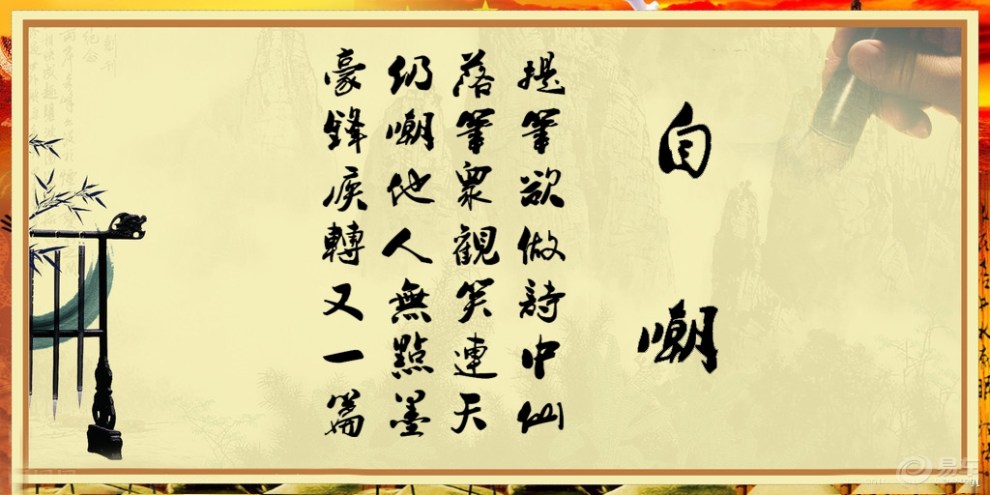 自嘲
提筆欲做詩中仙
落筆眾觀笑連天
仍嘲他人無點墨
豪鋒疾轉又一篇
易车